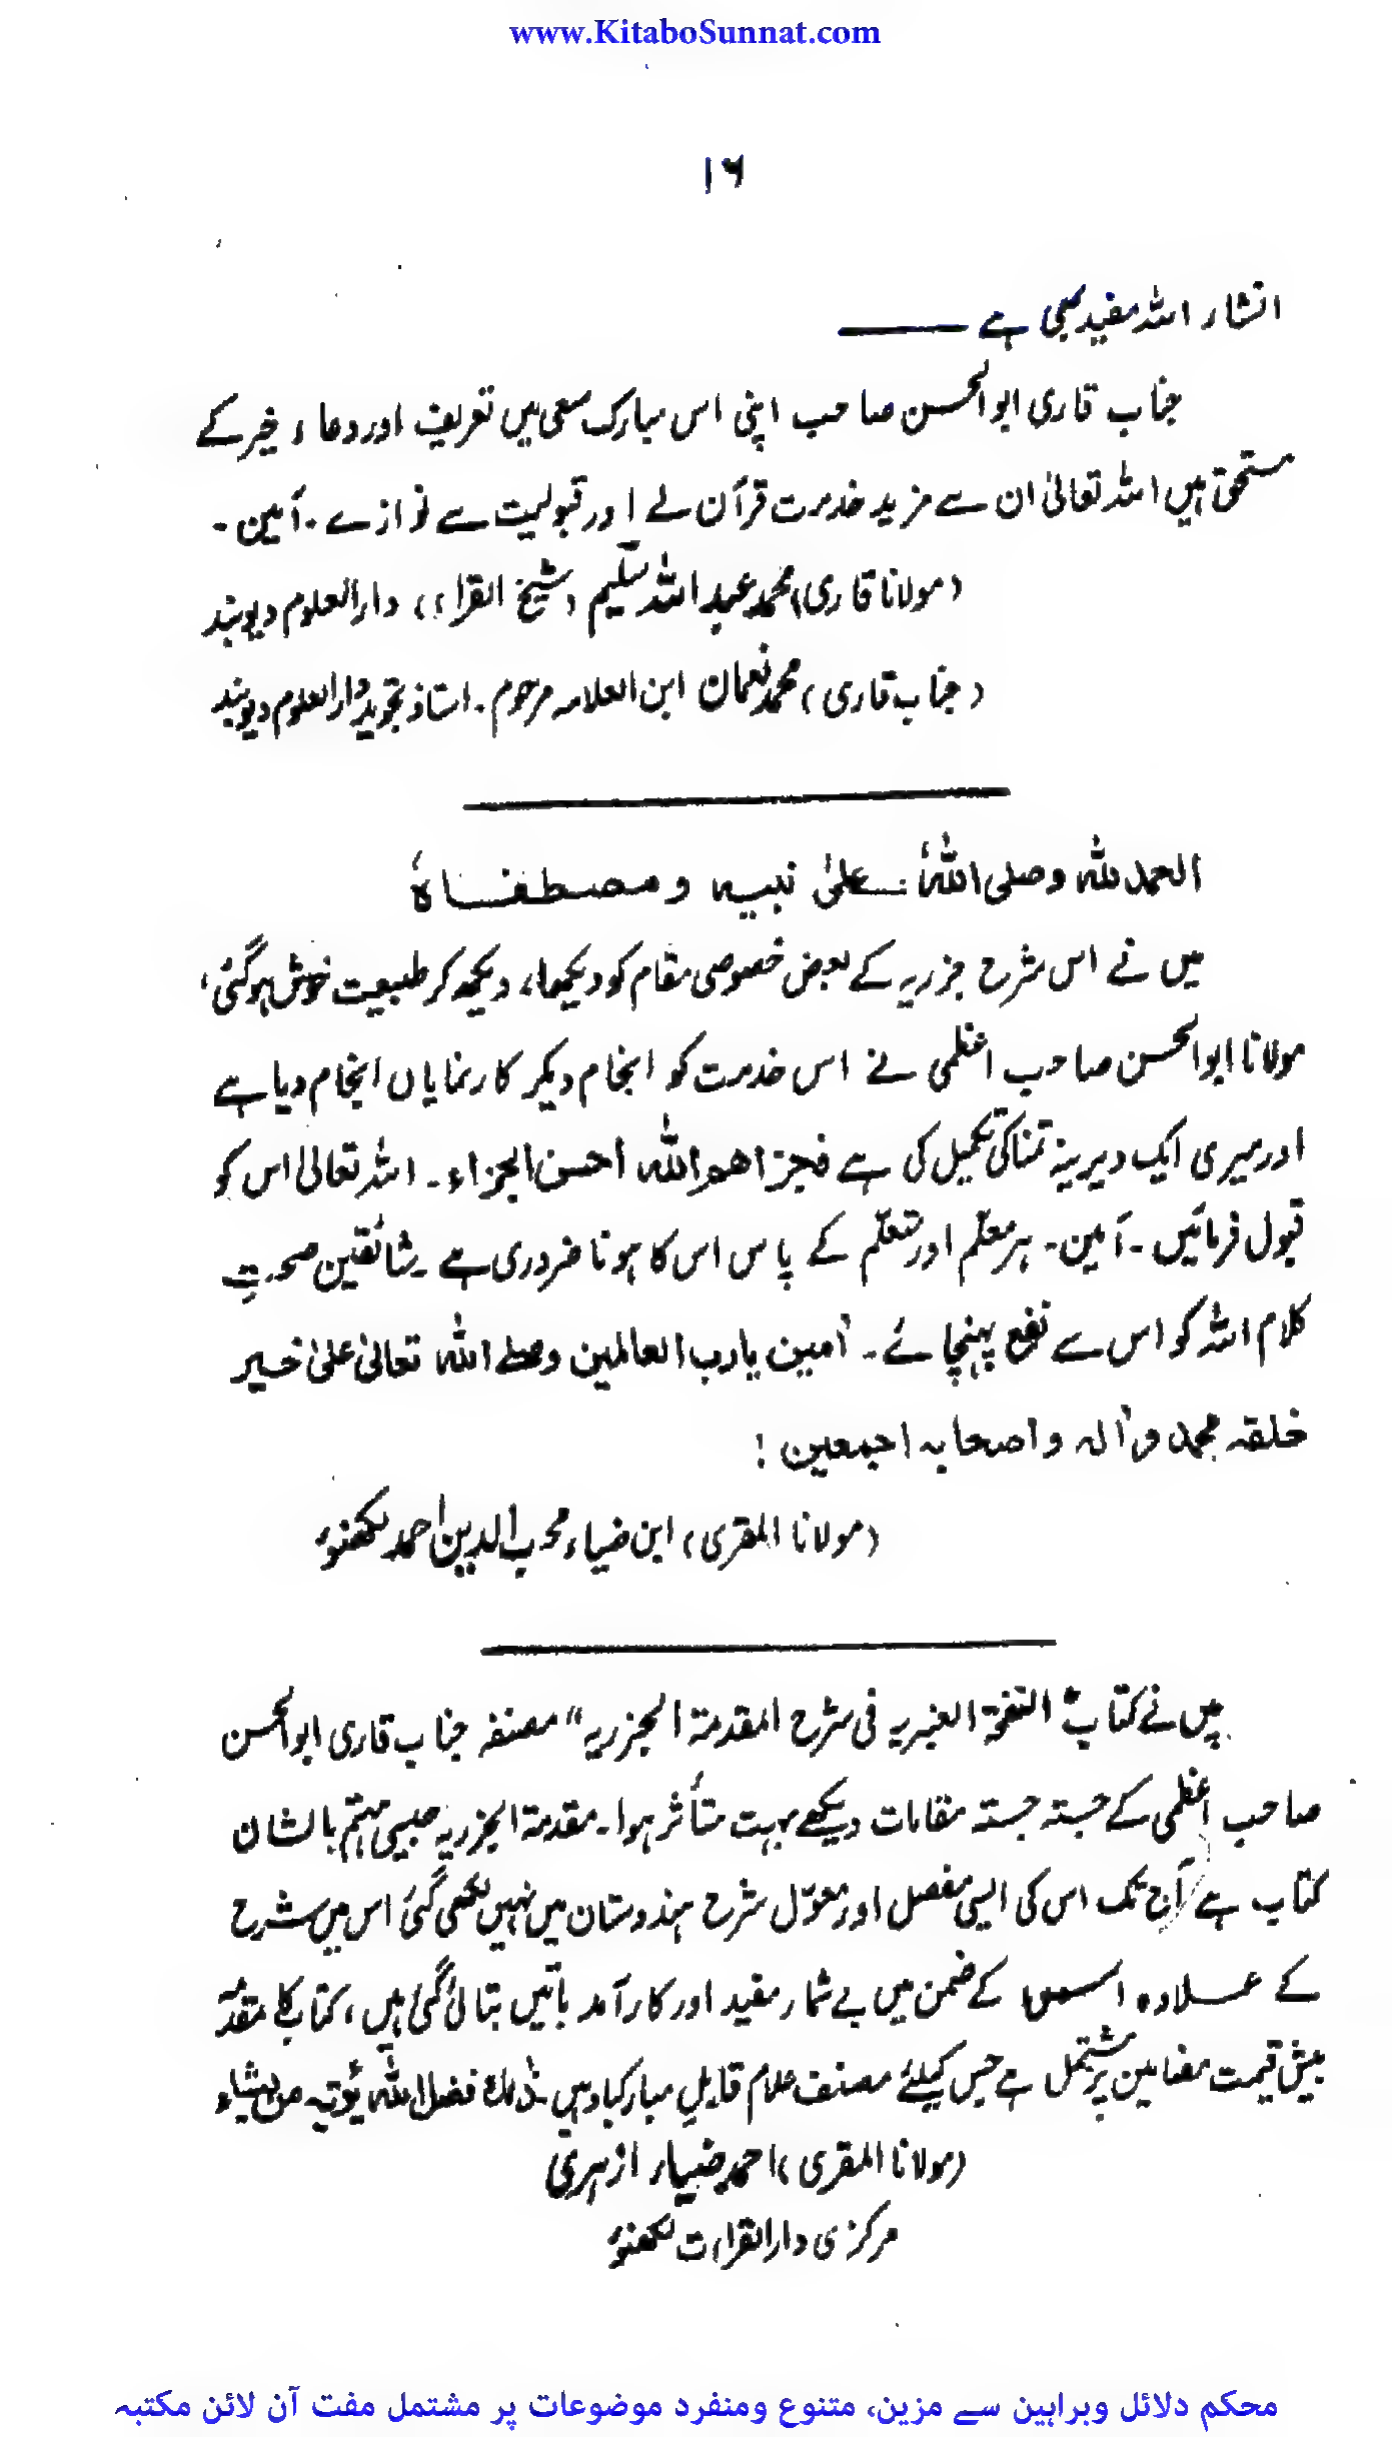 www.KitaboSunnat.com
۱۶
انشاء اللہ مفید بھی ہے ——
جناب قاری ابوالحسن صاحب اپنی اس مبارک سعی میں تعریف اور دعاء خیر کے
مستحق ہیں اللہ تعالیٰ ان سے مزید خدمت قرآن لے اور قبولیت سے نوازے ۔ آمین ۔
(مولانا قاری) محمد عبد اللہ سلیم (شیخ القراء) دارالعلوم دیوبند
(جناب قاری) محمد نعمان ابن العلامہ مرحوم ۔ استاذ تجوید دارالعلوم دیوبند
الحمد للہ وصلی اللہ علیٰ نبیہ ومصطفاہ
میں نے اس شرح جزریہ کے بعض خصوصی مقام کو دیکھا، دیکھ کر طبیعت خوش ہوگئی،
مولانا ابوالحسن صاحب اعظمی نے اس خدمت کو انجام دیکر کارنمایاں انجام دیا ہے
اور میری ایک دیرینہ تمنا کی تکمیل کی ہے فجزاھم اللہ احسن الجزاء ۔ اللہ تعالیٰ اس کو
قبول فرمائیں ۔ آمین ۔ ہر معلّم اور متعلّم کے پاس اس کا ہونا ضروری ہے ۔ شائقین صحتِ
کلام اللہ کو اس سے نفع پہنچائے ۔ اٰمین یارب العالمین وصلے اللہ تعالیٰ علیٰ خیر
خلقہ محمد واٰلہ واصحابہ اجمعین !
(مولانا المقری) ابن ضیاء محب الدین احمد لکھنؤ
میں نے کتاب "النفحۃ العنبریہ فی شرح المقدمۃ الجزریہ" مصنفہ جناب قاری ابوالحسن
صاحب اعظمی کے جستہ جستہ مقامات دیکھے بہت متأثر ہوا ۔ مقدمۃ الجزریہ جیسی مہتم بالشان
کتاب ہے آج تک اس کی ایسی مفصل اور معوّل شرح ہندوستان میں نہیں لکھی گئی اس میں شرح
کے علاوہ اس کے ضمن میں بے شمار مفید اور کارآمد باتیں بتائی گئی ہیں، کتاب کا مقدمہ
بیش قیمت مضامین پر مشتمل ہے جس کیلئے مصنف علام قابلِ مبارکباد ہیں ۔ ذٰلک فضل اللہ یؤتیہ من یشاء
(مولانا المقری) احمد ضیاء ازہری
مرکزی دارالقراءت لکھنؤ
محکم دلائل وبراہین سے مزین، متنوع ومنفرد موضوعات پر مشتمل مفت آن لائن مکتبہ